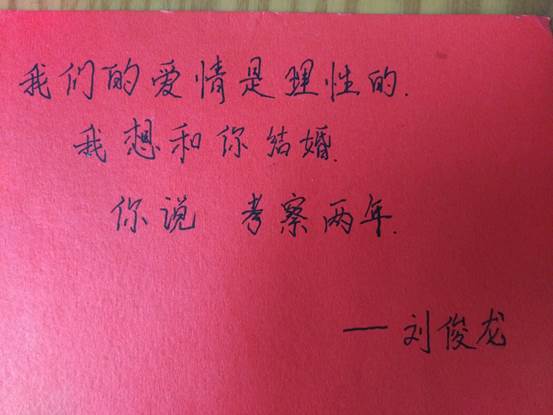 我们的爱情是理性的.
我想和你结婚.
你说 考察两年.
—刘俊龙